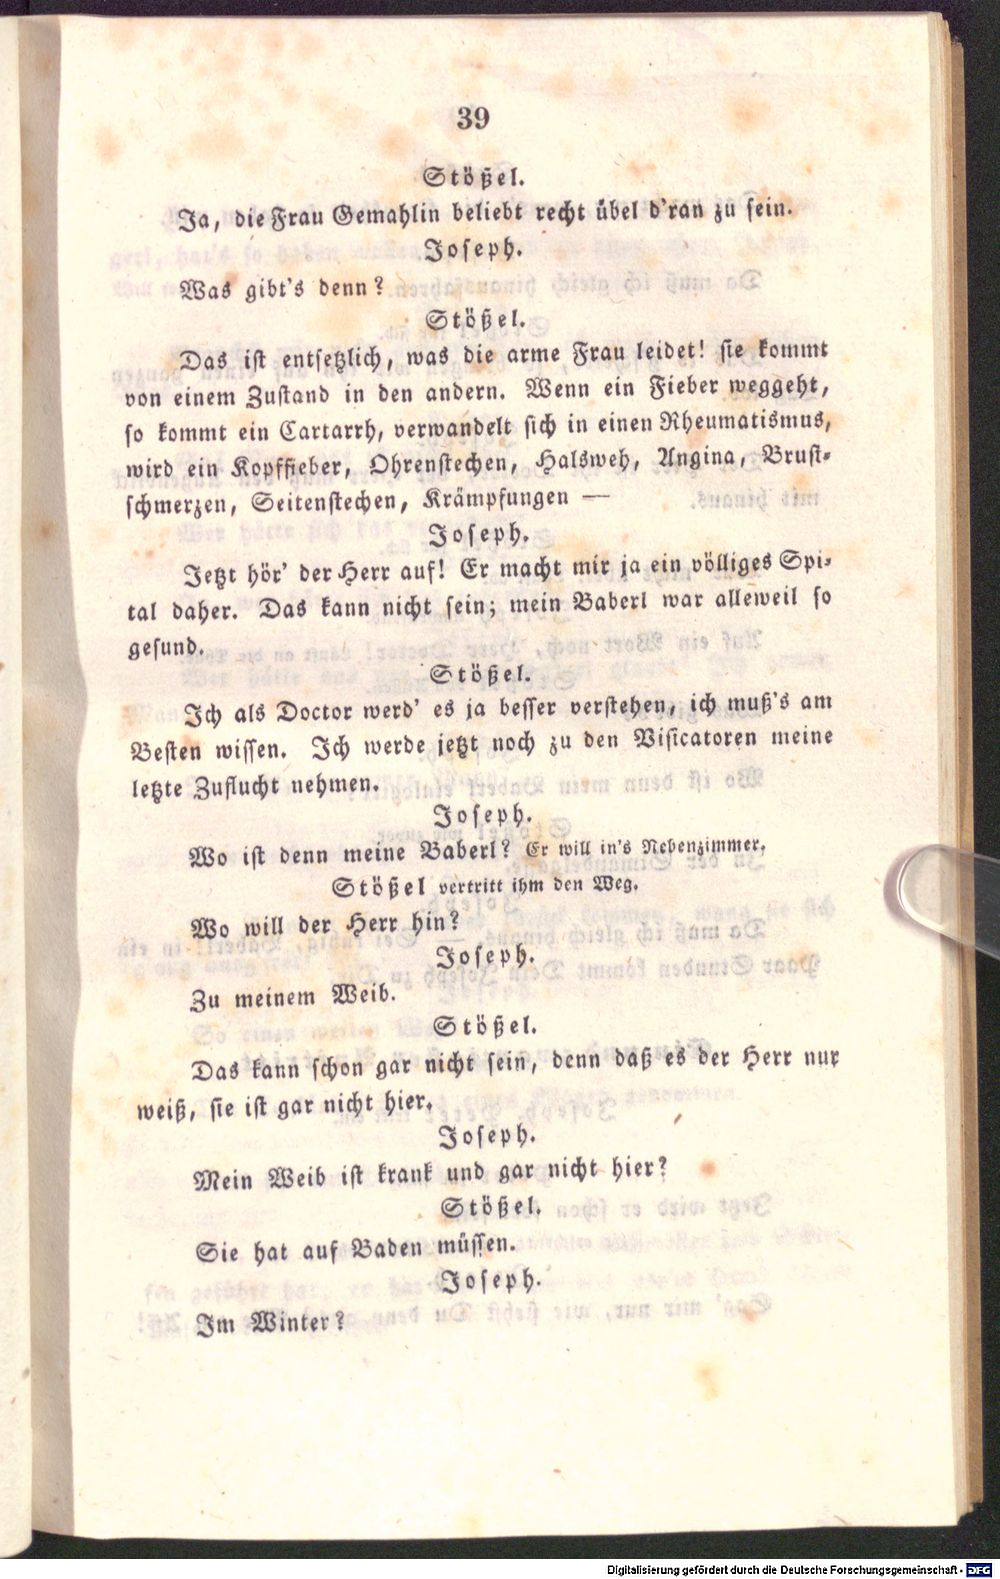 39
Stößel.
Ja, die Frau Gemahlin beliebt recht übel d'ran zu sein.
Joseph.
Was gibt's denn?
Stößel.
Das ist entsetzlich, was die arme Frau leidet! sie kommt
von einem Zustand in den andern. Wenn ein Fieber weggeht,
so kommt ein Cartarrh, verwandelt sich in einen Rheumatismus,
wird ein Kopffieber, Ohrenstechen, Halsweh, Angina, Brust-
schmerzen, Seitenstechen, Krämpfungen —
Joseph.
Jetzt hör' der Herr auf! Er macht mir ja ein völliges Spi-
tal daher. Das kann nicht sein; mein Baberl war alleweil so
gesund.
Stößel.
Ich als Doctor werd' es ja besser verstehen, ich muß's am
Besten wissen. Ich werde jetzt noch zu den Visicatoren meine
letzte Zuflucht nehmen.
Joseph.
Wo ist denn meine Baberl? Er will in's Nebenzimmer.
Stößel vertritt ihm den Weg.
Wo will der Herr hin?
Joseph.
Zu meinem Weib.
Stößel.
Das kann schon gar nicht sein, denn daß es der Herr nur
weiß, sie ist gar nicht hier.
Joseph.
Mein Weib ist krank und gar nicht hier?
Stößel.
Sie hat auf Baden müssen.
Joseph.
Im Winter?
Digitalisierung gefördert durch die Deutsche Forschungsgemeinschaft - DFG